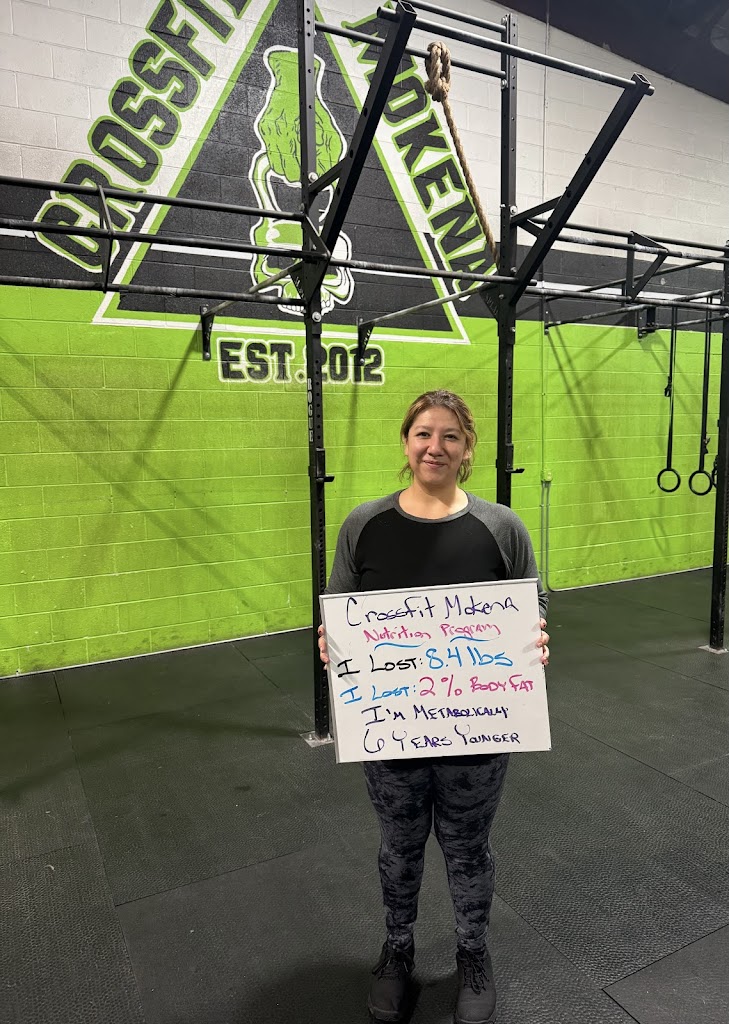 CROSSFIT MOKENA
EST. 2012
CrossFit Mokena
Nutrition Program
I Lost: 8.4 lbs
I Lost: 2% Body Fat
I'm Metabolically
6 Years Younger